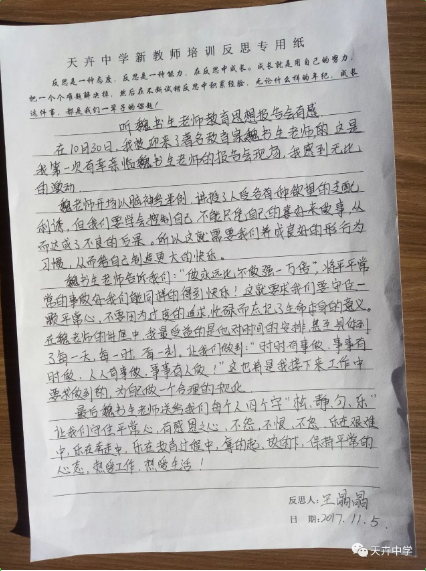 天卉中学新教师培训反思专用纸
反思是一种态度，反思是一种能力，在反思中成长。成长就是用自己的努力，
把一个个难题解决掉，然后在不断试错反思中积累经验，无论什么样的年纪，成长
这件事，都是我们一辈子的课题！
听魏书生老师教育思想报告会有感
在10月30日，我们迎来了著名教育家魏书生老师的，这是
我第一次有幸亲临魏书生老师的报告会现场，我感到无比
的激动
魏老师开场以脑神经举例，讲授了人会有各种欲望的支配
利诱，但我们要学会控制自己，不能只凭自己的喜好来做事，从
而达成了不良的后果。所以这就需要我们养成良好的行为
习惯，从而给自己制造更大的快乐。
魏书生老师告诉我们："做永远比不做强一万倍"，将平平常
常的事做好我们能同样的得到快乐！这就要求我们要守住一
颗平常心，不要因为过度的追求，忙碌而忘记了生命应有的意义。
在魏老师的讲座中，我最受益的是他对时间的安排，甚至具体到
了每一天，每一时，每一刻。让我们做到："时时有事做，事事有
时做，人人有事做，事事有人做！"这也将是我接下来工作中
要求做到的，为自己做一个合理的规化
最后魏书生老师送给我们每个人四个字"松、静、匀、乐"
让我们守住平常心，有感恩之心，不怨，不恨，不怒，乐在艰难
中，乐在奔走中，乐在教育过程中，拿的起，放的下，保持平常的
心态，热爱工作，热爱生活！
反思人：王晶晶
日　期：2017.11.5.
天卉中学